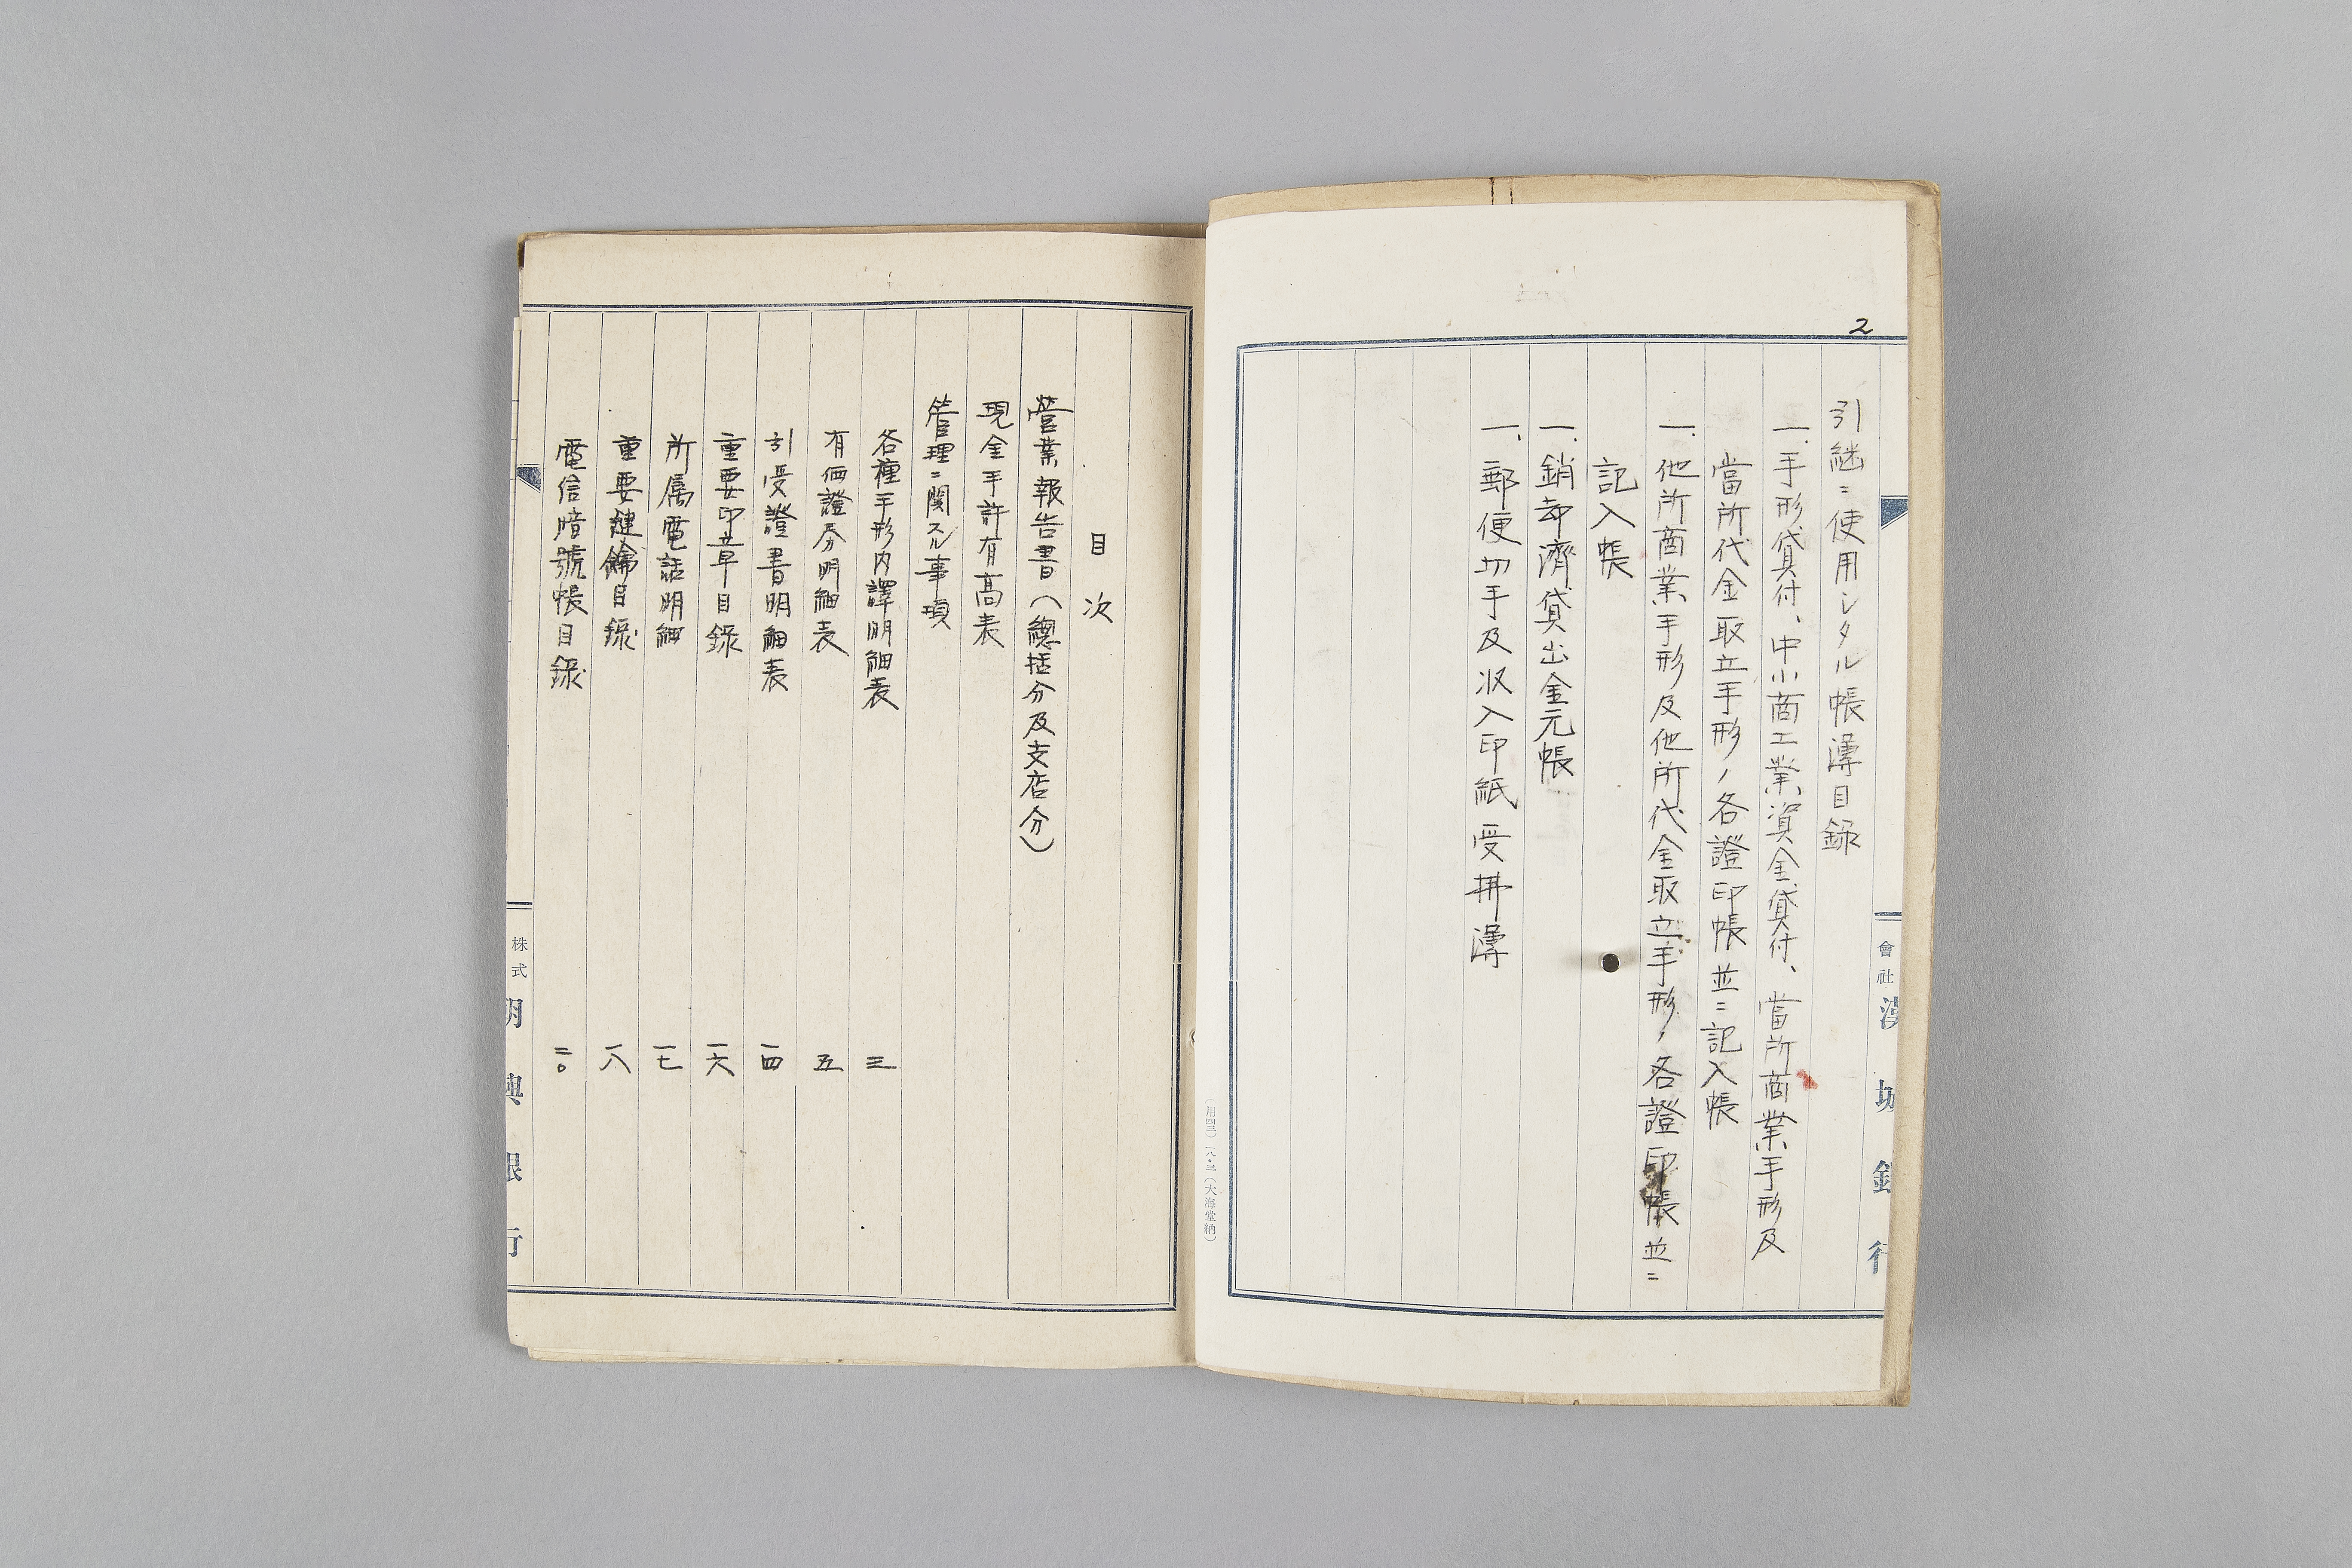 2
引継ニ使用シタル帳簿目録
一、手形貸付、中小商工業資金貸付、當所商業手形及
當所代金取立手形ノ各證印帳並ニ記入帳
一、他所商業手形及他所代金取立手形ノ各證印帳並ニ
記入帳
一、銷却濟貸出金元帳
一、郵便切手及収入印紙受拂簿
會社
漢城銀行
(用四三)一八・三(大海堂納)
目次
営業報告書(總括分及支店分)
現金手許有高表
管理ニ関スル事項
各種手形内譯明細表 三
有価證券明細表 五
引受證書明細表 一四
重要印章目錄 一六
所属電話明細 一七
重要鍵鑰目録 一八
電信暗號帳目録 二〇
株式
明興銀行